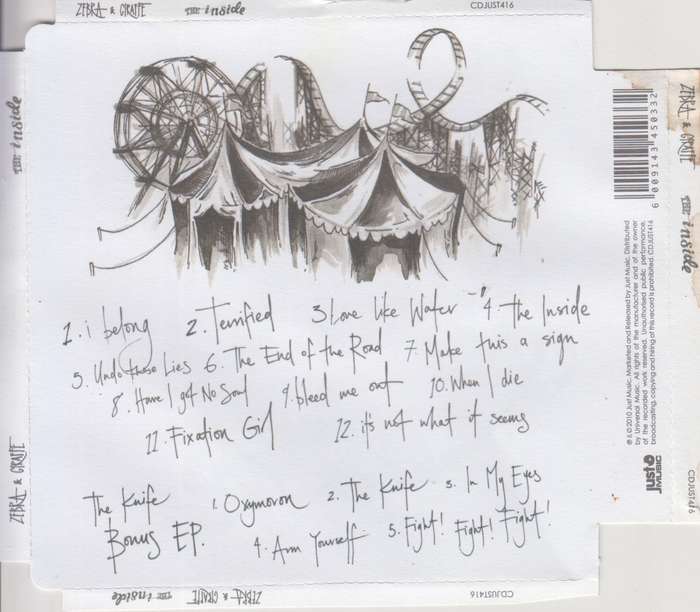 ZEBRA & GIRAFFE THE inside CDJUST416
THE inside
ZEBRA & GIRAFFE
ZEBRA & GIRAFFE THE inside
6 009143 450332
1. i belong 2. Terrified 3 Love Like Water 4. The Inside
5. Undo these Lies 6. The End of the Road 7. Make this a sign
8. Have I got No Soul 9. bleed me out 10. When I die
11. Fixation Girl 12. it's not what it seems
The Knife Bonus EP.
1. Oxymoron 2. The Knife 3. In My Eyes
4. Arm Yourself 5. Fight! Fight! Fight!
℗ & © 2010 Just Music. Marketed and Released by Just Music. Distributed
by Universal Music. All rights of the manufacturer and of the owner
of the recorded work reserved. Unauthorised public performance,
broadcasting, copying and hiring of this record is prohibited. CDJUST416
just MUSIC
CDJUST416
THE inside ZEBRA & GIRAFFE CDJUST416